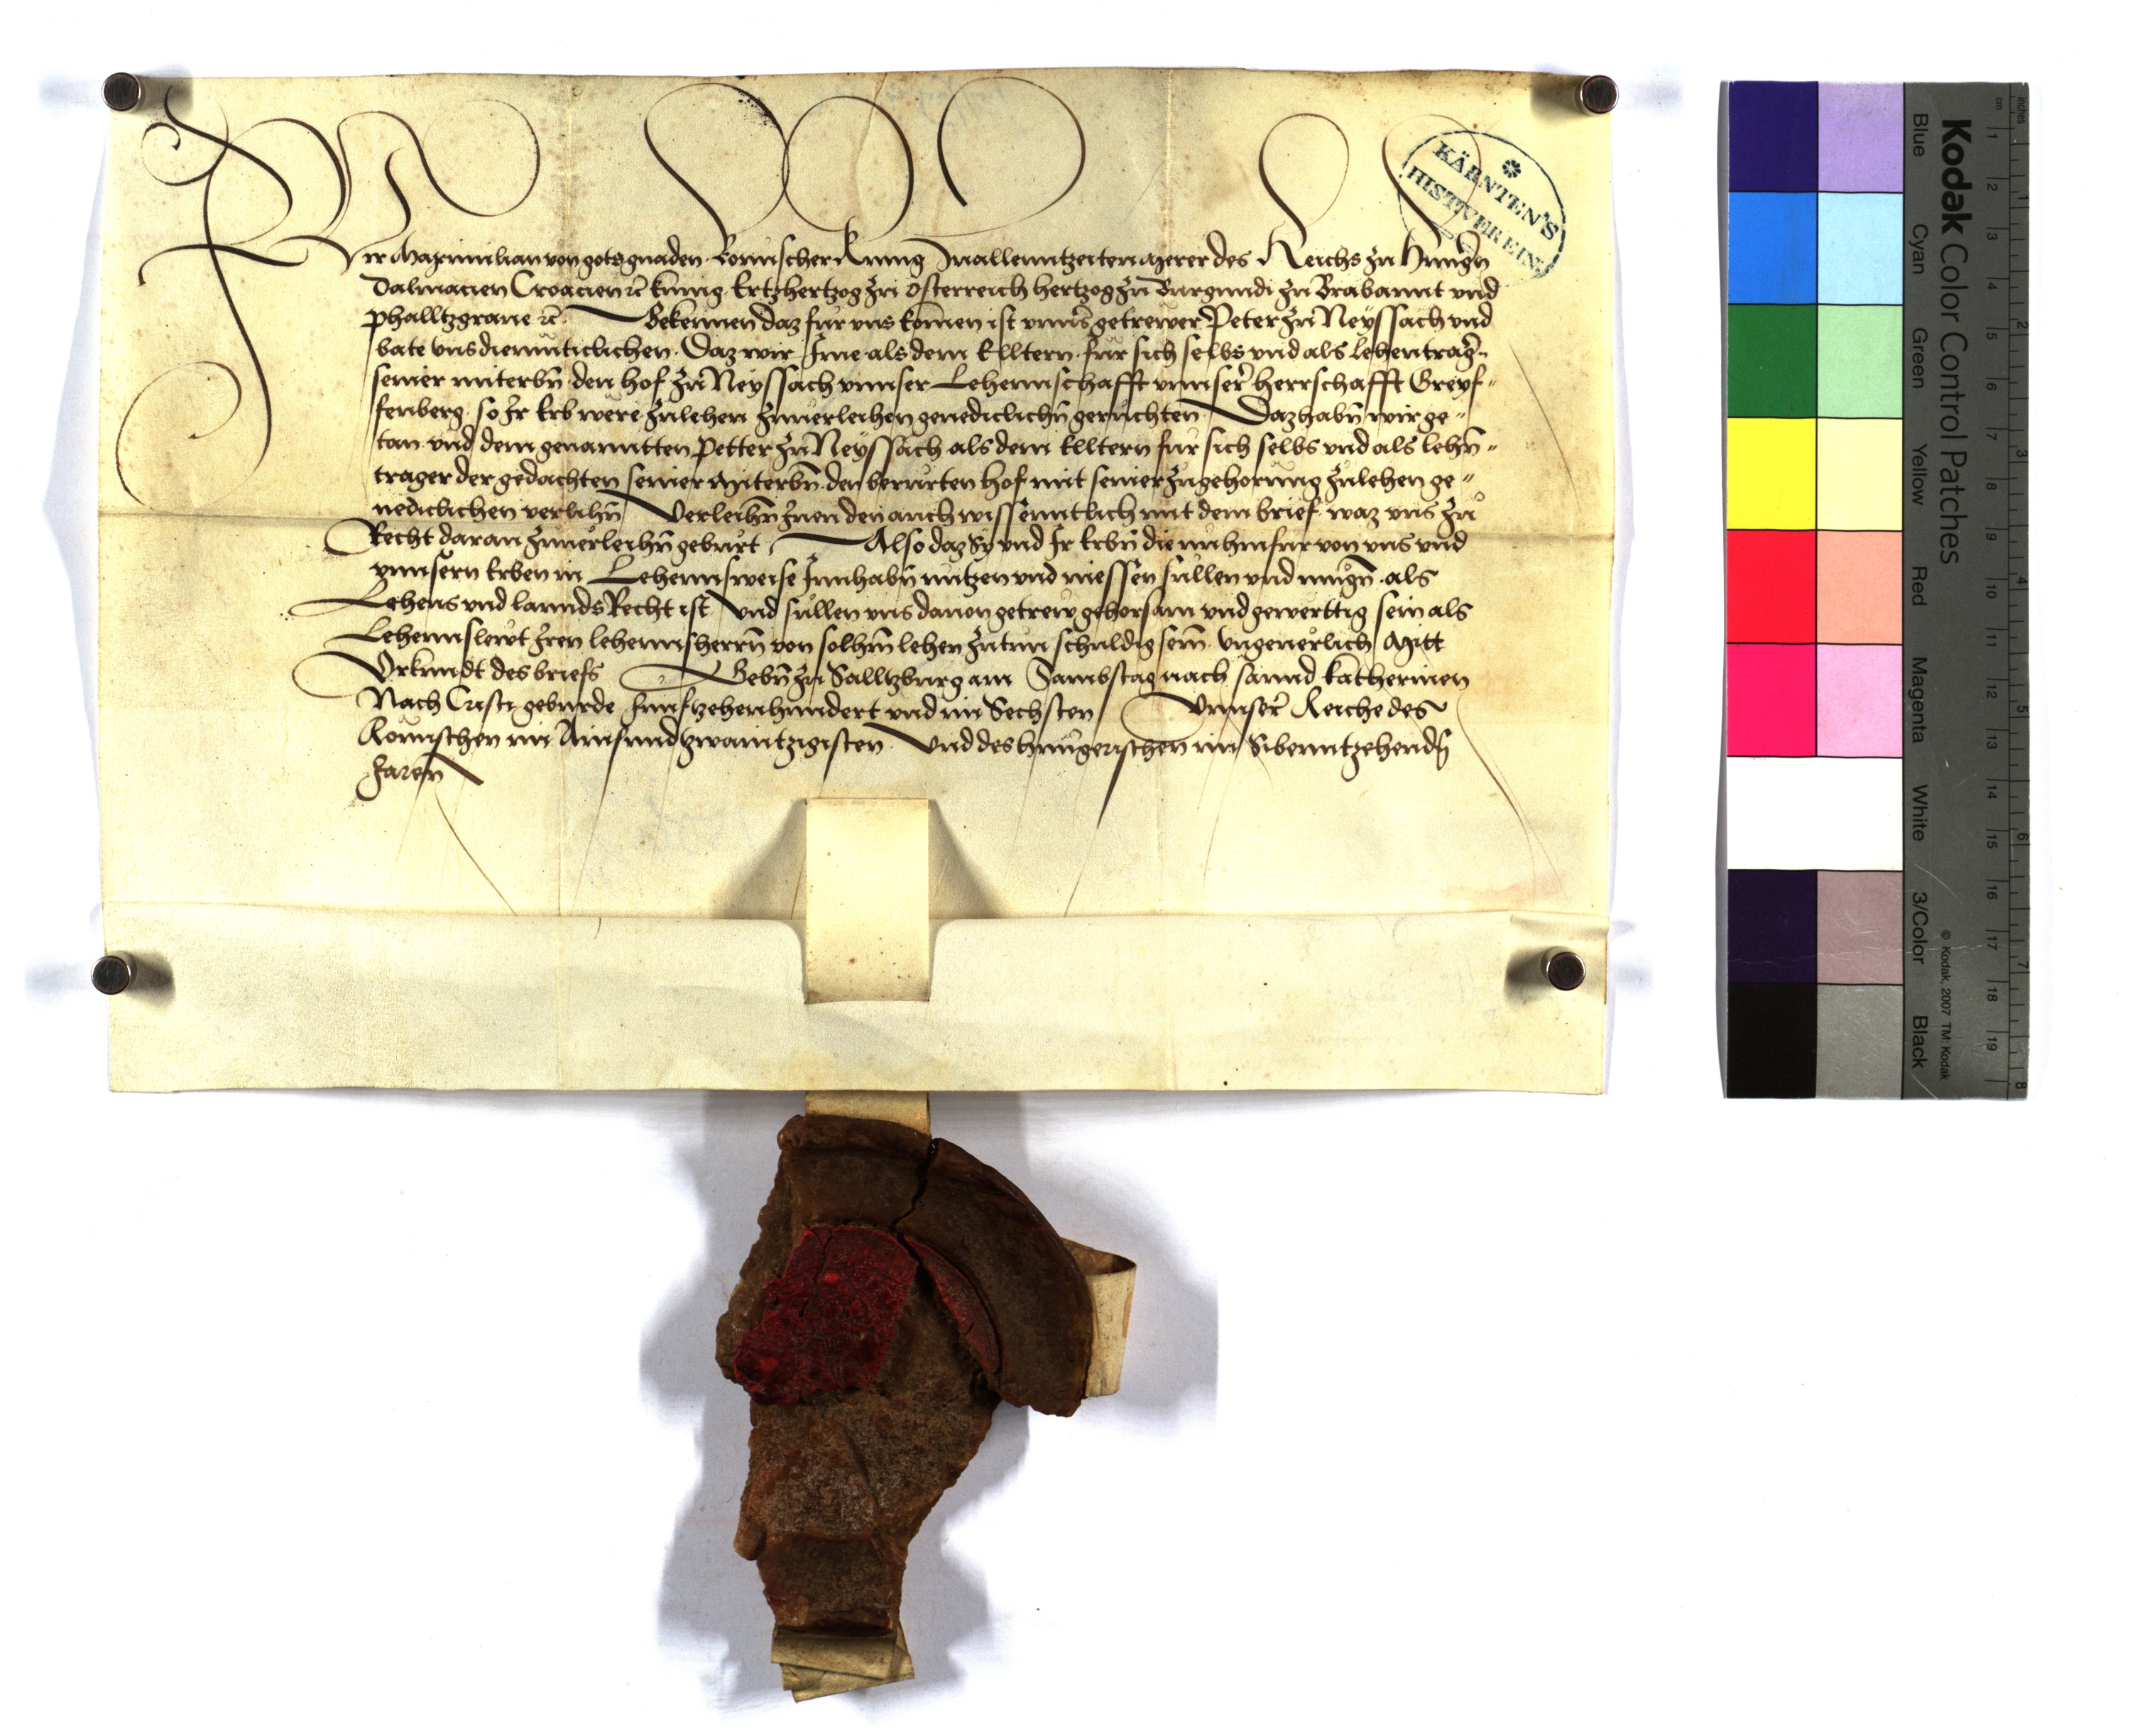 Wir Maximilian von gots gnaden Romischer Kunig zu allenntzeiten merer des Reichs zu Hungrn
Dalmacien Croacien ꝛc̄ kunig Ertzhertzog zu Osterreich hertzog zu Burgundi zu Brabannt vnd
phalltzgraue ꝛc̄ Bekennen daz für vns komen ist vnnser getrewer Peter zu Neyssach vnd
bate vns diemuticlichen Daz wir Ime als dem Elltern für sich selbs vnd als lehentrager
seiner miterbn̄ den hof zu Neyssach vnnser Lehennschafft vnnser herrschafft Greyf-
fenberg so Ir Erb were zulehen zuuerleihen genediclichn̄ geruchten Daz habn̄ wir ge-
tan vnd dem genanntten Petter zu Neyssach als dem Elltern für sich selbs vnd als lehn̄-
trager der gedachten seiner miterbn̄ den berurten hof mit seiner zugehorung zulehen ge-
nediclichen verlihn̄ Verleihn̄ Inen den auch wissenntlich mit dem brief waz wir In zu
Recht daran zuuerleihn̄ geburt Also daz Sy vnd Ir Erbn̄ die nu hinfur von vns vnd
vnnsern Erben in Lehennsweise Innhabn̄ nutzen vnd niessen sullen vnd mugn̄ als
Lehens vnd lannds Recht ist Vnd sullen vns dauon getrew gehorsam vnd gewerttig sein als
Lehennslewt Iren lehennsherrn̄ von solhn̄ lehen zutun schuldig sein vngeuerlich Mitt
Vrkundt des briefs Gebn̄ zu Salltzburg am Sambstag nach sannd Katherinen
Nach Cristi geburde funfftzehenhundert vnd im Sechsten Vnnser Reiche des
Romischen im Ainsundzwaintzigisten Vnd des hungerischen im Sibenntzehendn̄
Jaren
KÄRNTEN'S
HIST. VEREIN
Kodak Color Control Patches
Blue Cyan Green Yellow Red Magenta White 3/Color Black
© Kodak, 2007 TM: Kodak
cm 1 2 3 4 5 6 7 8 9 10 11 12 13 14 15 16 17 18 19
inches 1 2 3 4 5 6 7 8